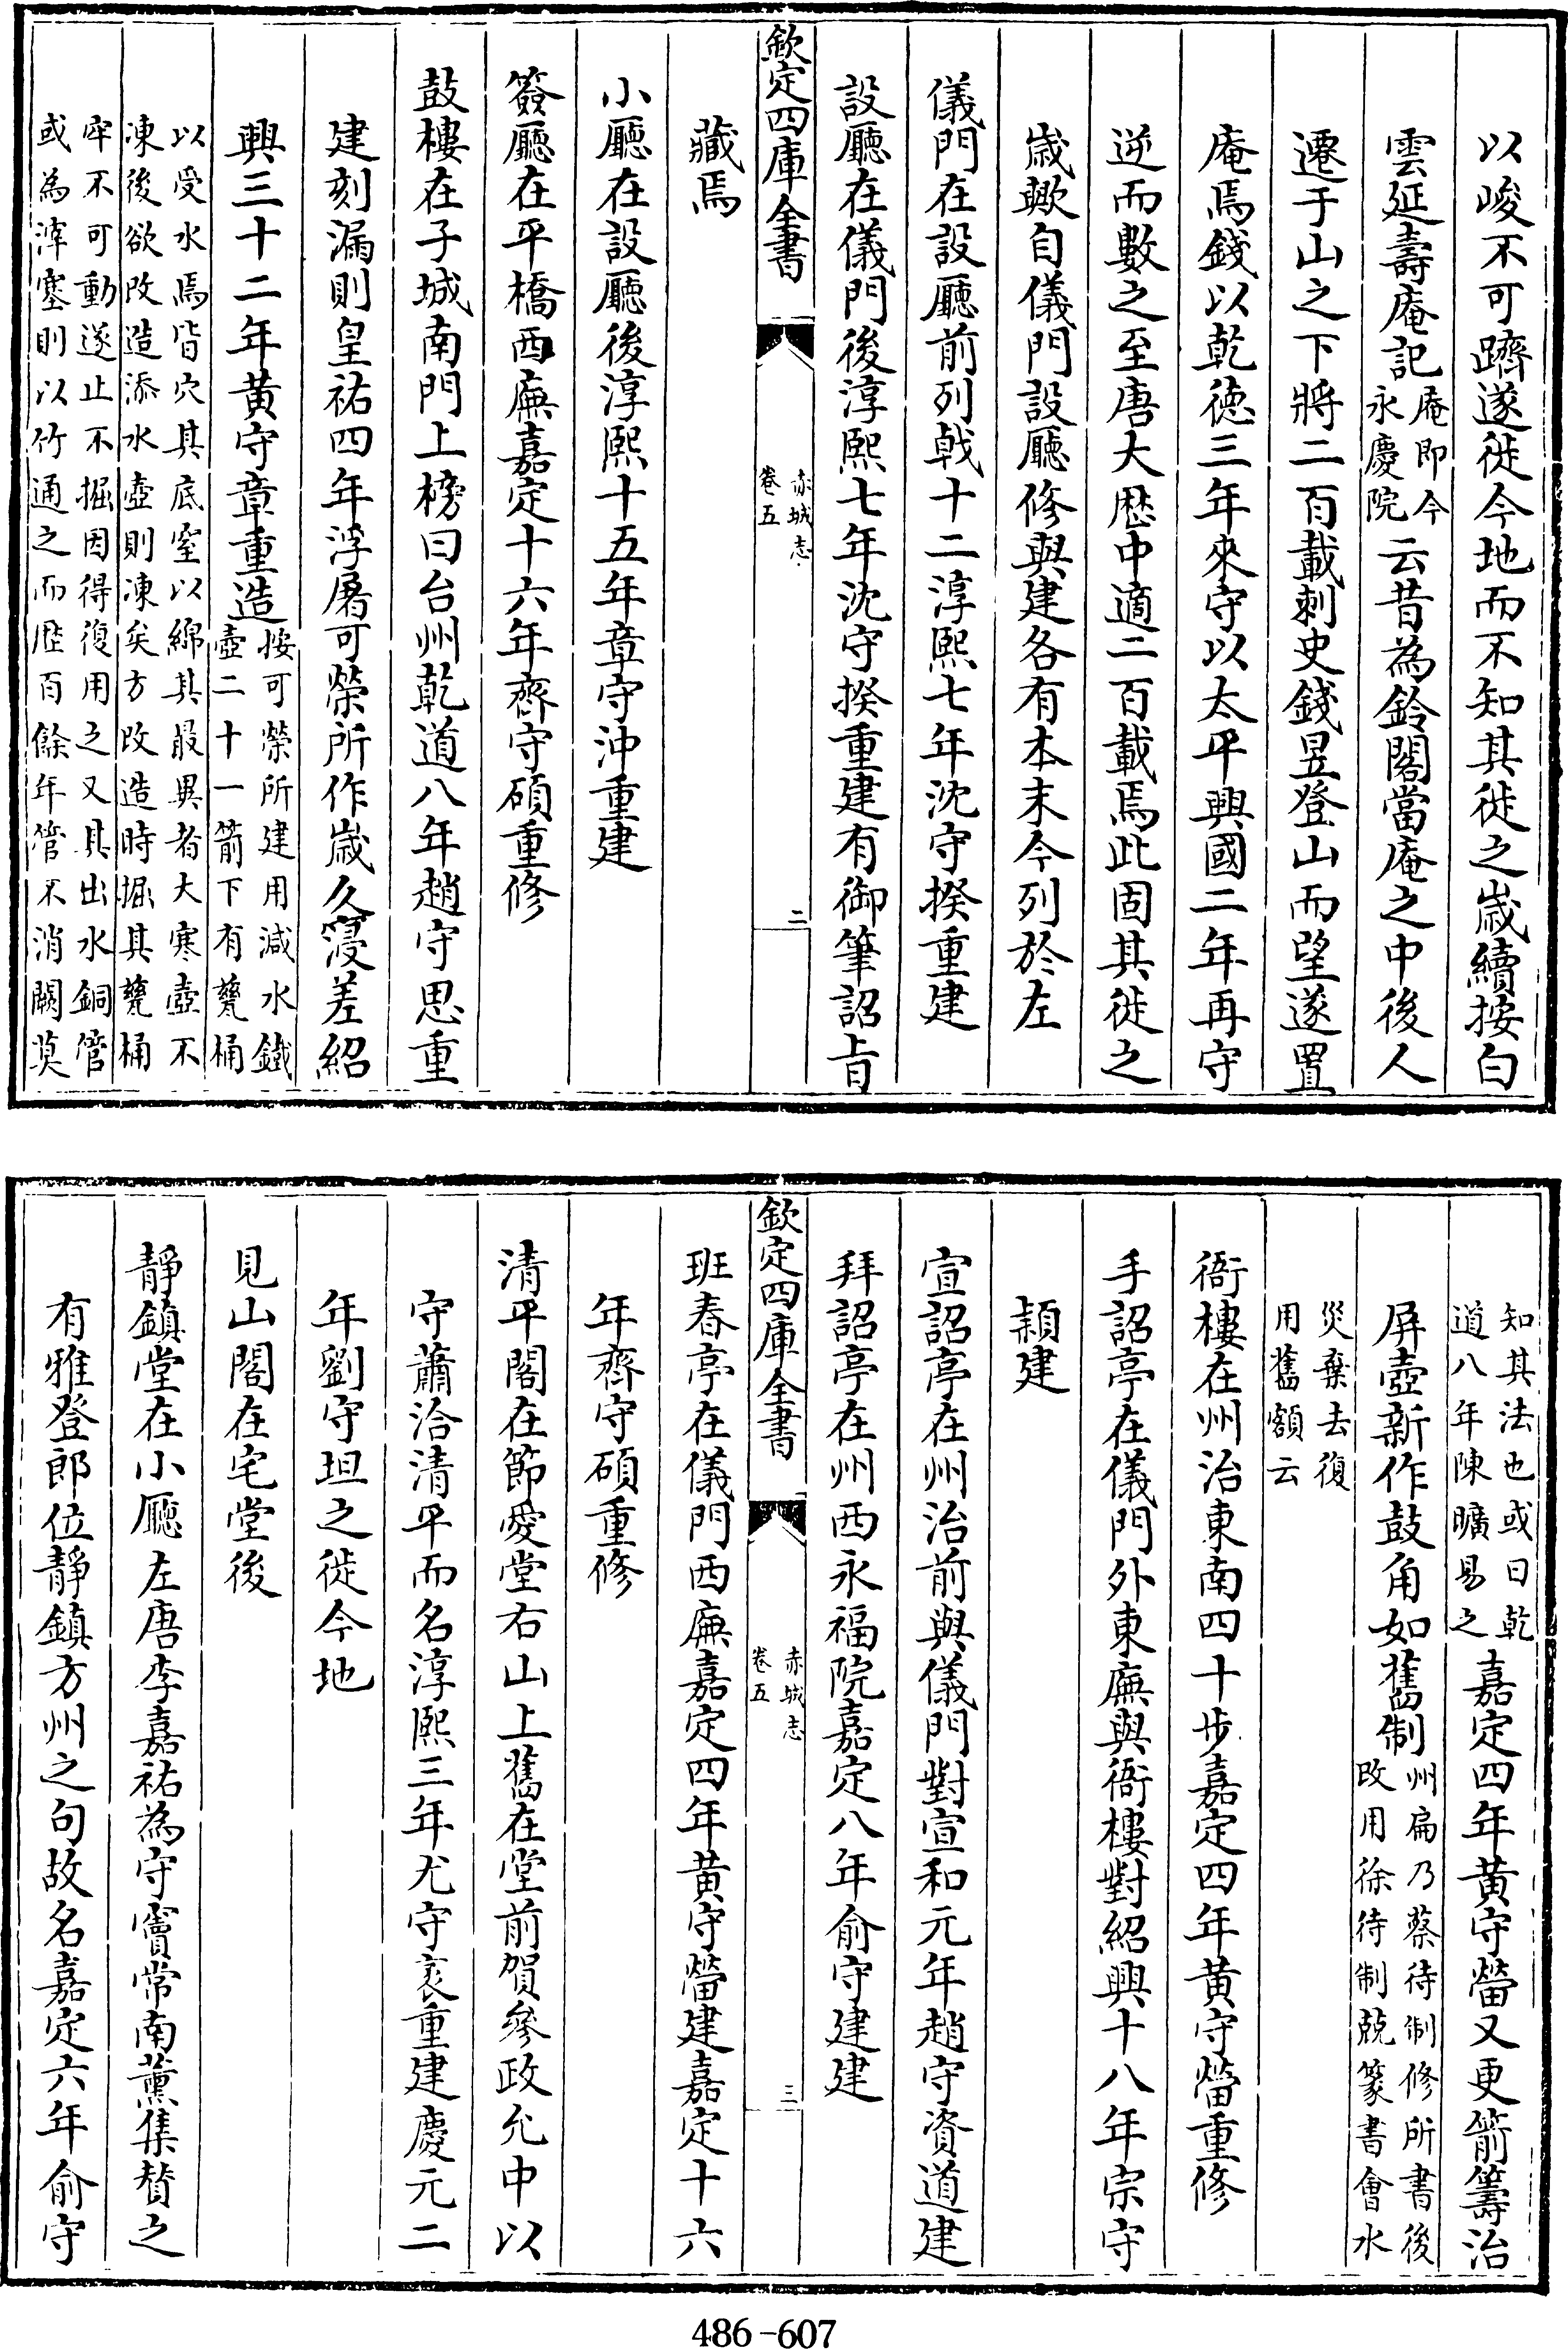 以峻不可躋遂徙今地而不知其徙之歲續按白
雲延壽庵記庵即今永慶院云昔為鈴閣當庵之中後人
遷于山之下將二百載刺史錢昱登山而望遂置
庵焉錢以乾徳三年來守以太平興國二年再守
逆而數之至唐大厯中適二百載焉此固其徙之
歲歟自儀門設廳修與建各有本末今列於左
儀門在設廳前列戟十二淳熙七年沈守揆重建
設廳在儀門後淳熙七年沈守揆重建有御筆詔㫖
欽定四庫全書
赤城志
卷五
二
藏焉
小廳在設廳後淳熙十五年章守沖重建
簽廳在平橋西廡嘉定十六年齊守碩重修
鼓樓在子城南門上榜曰台州乾道八年趙守思重
建刻漏則皇祐四年浮屠可榮所作歲久寖差紹
興三十二年黃守章重造按可榮所建用減水鐵
壺二十一箭下有甕桶
以受水焉皆穴其底窒以綿其最異者大寒壺不
凍後欲改造添水壺則凍矣方改造時掘其甕桶
牢不可動遂止不掘因得復用之又其出水銅管
或為滓塞則以竹通之而歴百餘年管不消闕莫
知其法也或曰乾
道八年陳曠易之嘉定四年黃守㽦又更箭籌治
屏壺新作鼓角如舊制州扁乃蔡待制修所書後
改用徐待制兢篆書會水
災棄去復
用舊額云
衙樓在州治東南四十步嘉定四年黃守㽦重修
手詔亭在儀門外東廡與衙樓對紹興十八年宗守
頴建
宣詔亭在州治前與儀門對宣和元年趙守資道建
拜詔亭在州西永福院嘉定八年俞守建建
欽定四庫全書
赤城志
卷五
三
班春亭在儀門西廡嘉定四年黃守㽦建嘉定十六
年齊守碩重修
清平閣在節愛堂右山上舊在堂前賀參政允中以
守蕭洽清平而名淳熙三年尤守袤重建慶元二
年劉守坦之徙今地
見山閣在宅堂後
靜鎮堂在小廳左唐李嘉祐為守竇常南薰集賛之
有雅登郎位靜鎮方州之句故名嘉定六年俞守
486-607